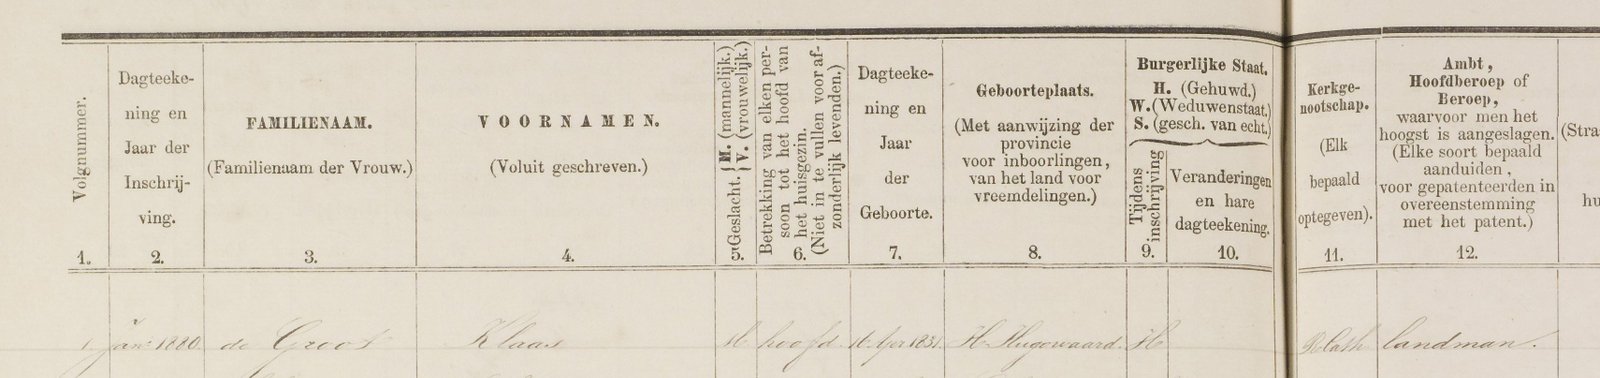 Volgnummer.
1.
Dagteeke-
ning en
Jaar der
Inschrij-
ving.
2.
FAMILIENAAM.
(Familienaam der Vrouw.)
3.
VOORNAMEN.
(Voluit geschreven.)
4.
Geslacht. { M. (mannelijk.)
V. (vrouwelijk.)
5.
Betrekking van elken per-
soon tot het hoofd van
het huisgezin.
(Niet in te vullen voor af-
zonderlijk levenden.)
6.
Dagteeke-
ning en
Jaar
der
Geboorte.
7.
Geboorteplaats.
(Met aanwijzing der
provincie
voor inboorlingen,
van het land voor
vreemdelingen.)
8.
Burgerlijke Staat.
H. (Gehuwd.)
W. (Weduwenstaat.)
S. (gesch. van echt.)
Tijdens
inschrijving
9.
Veranderingen
en hare
dagteekening.
10.
Kerkge-
nootschap.
(Elk
bepaald
optegeven).
11.
Ambt,
Hoofdberoep of
Beroep,
waarvoor men het
hoogst is aangeslagen.
(Elke soort bepaald
aanduiden,
voor gepatenteerden in
overeenstemming
met het patent.)
12.
(Stra
hu
1 Jan: 1880 de Groot Klaas M hoofd 16 Apr 1831 H. Hugowaard. H R Cath landman.